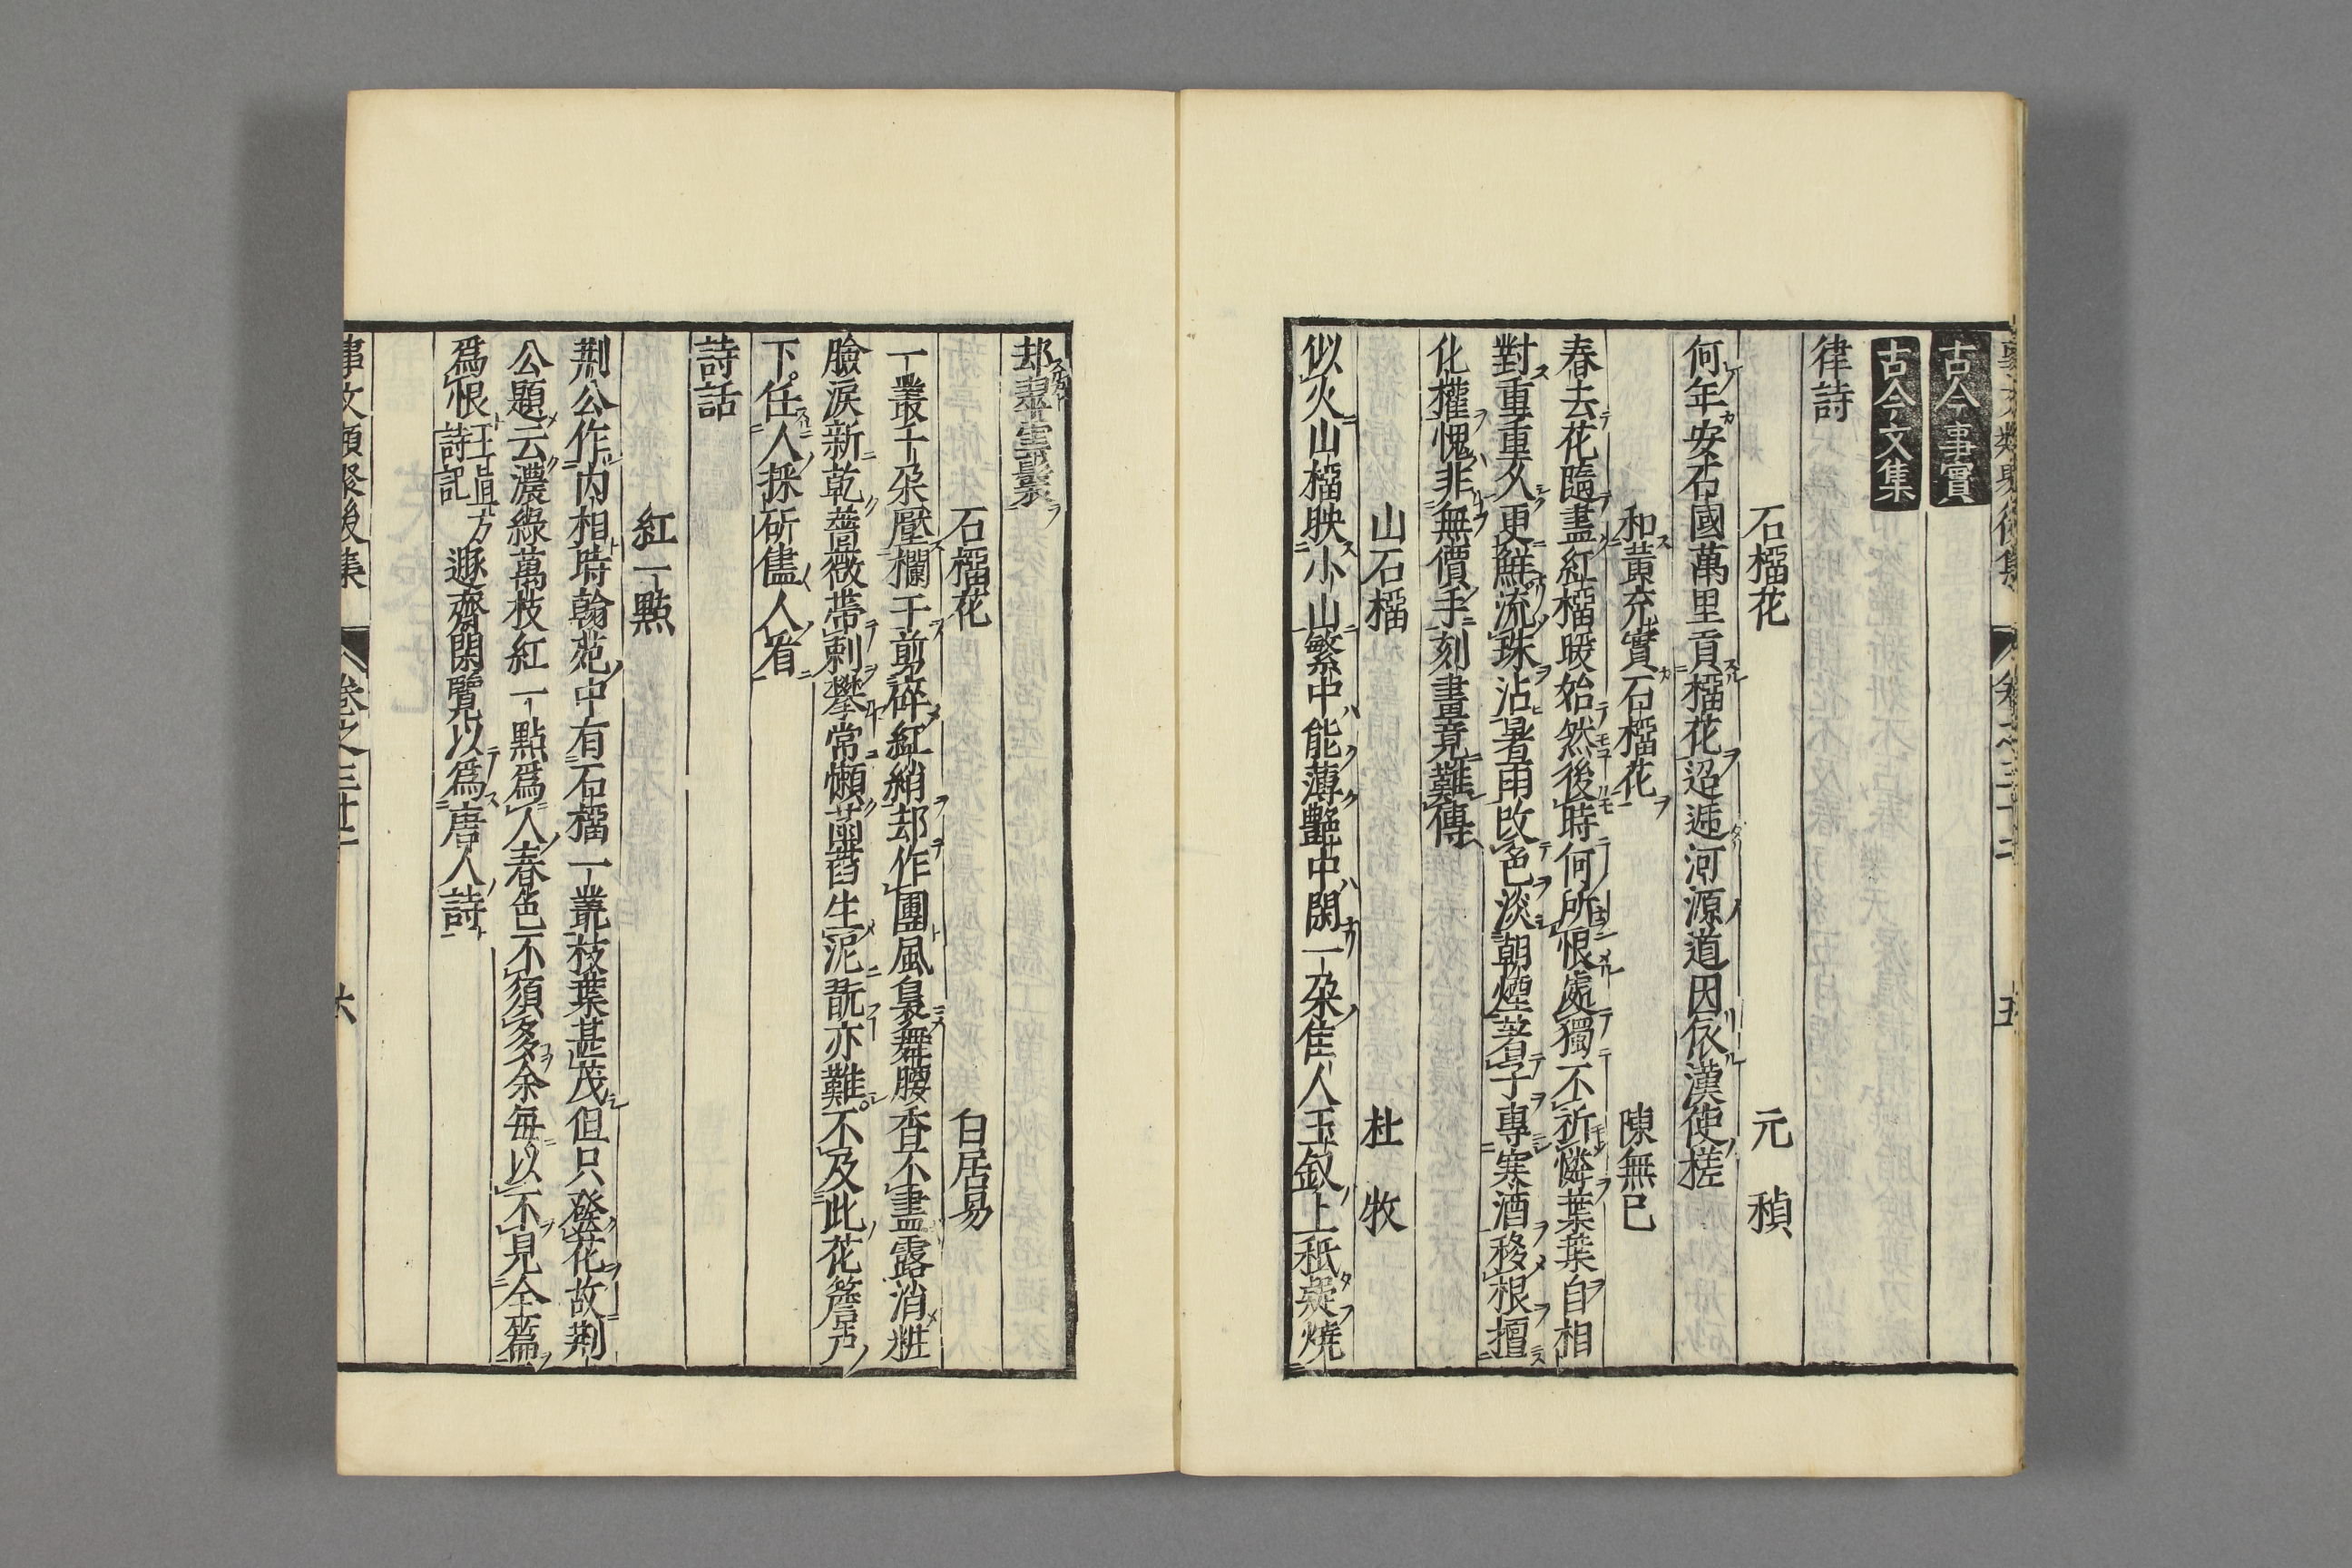 古今事實
古今文集
律詩
石榴花 元稹
何年安石國萬里貢榴花迢遞河源道因依漢使槎
和黃充實石榴花 陳無已
春去花隨盡紅榴暖始然後時何所恨處獨不祈憐葉葉自相
對重重久更鮮流珠沾暑雨改色淡朝煙著子專寒酒移根擅
化權愧非無價手刻畫竟難傳
山石榴 杜牧
似火山榴映小山繁中能薄艷中閑一朶佳人玉釵上秖疑燒
却翠雲鬟
石榴花 白居易
一叢千朶壓欄干剪碎紅綃却作團風裊舞腰香不盡露消粧
臉淚新乾薔薇帶刺攀常懶菡萏生泥翫亦難不及此花簷戸
下任人採斫儘人看
詩話
紅一點
荆公作内相時翰苑中有石榴一叢枝葉甚茂但只發花故荆
公題云濃綠萬枝紅一點爲人春色不須多余每以不見全篇
爲恨王直方詩記遯齋閑覽以爲唐人詩
事文類聚後集 卷之三十二 六